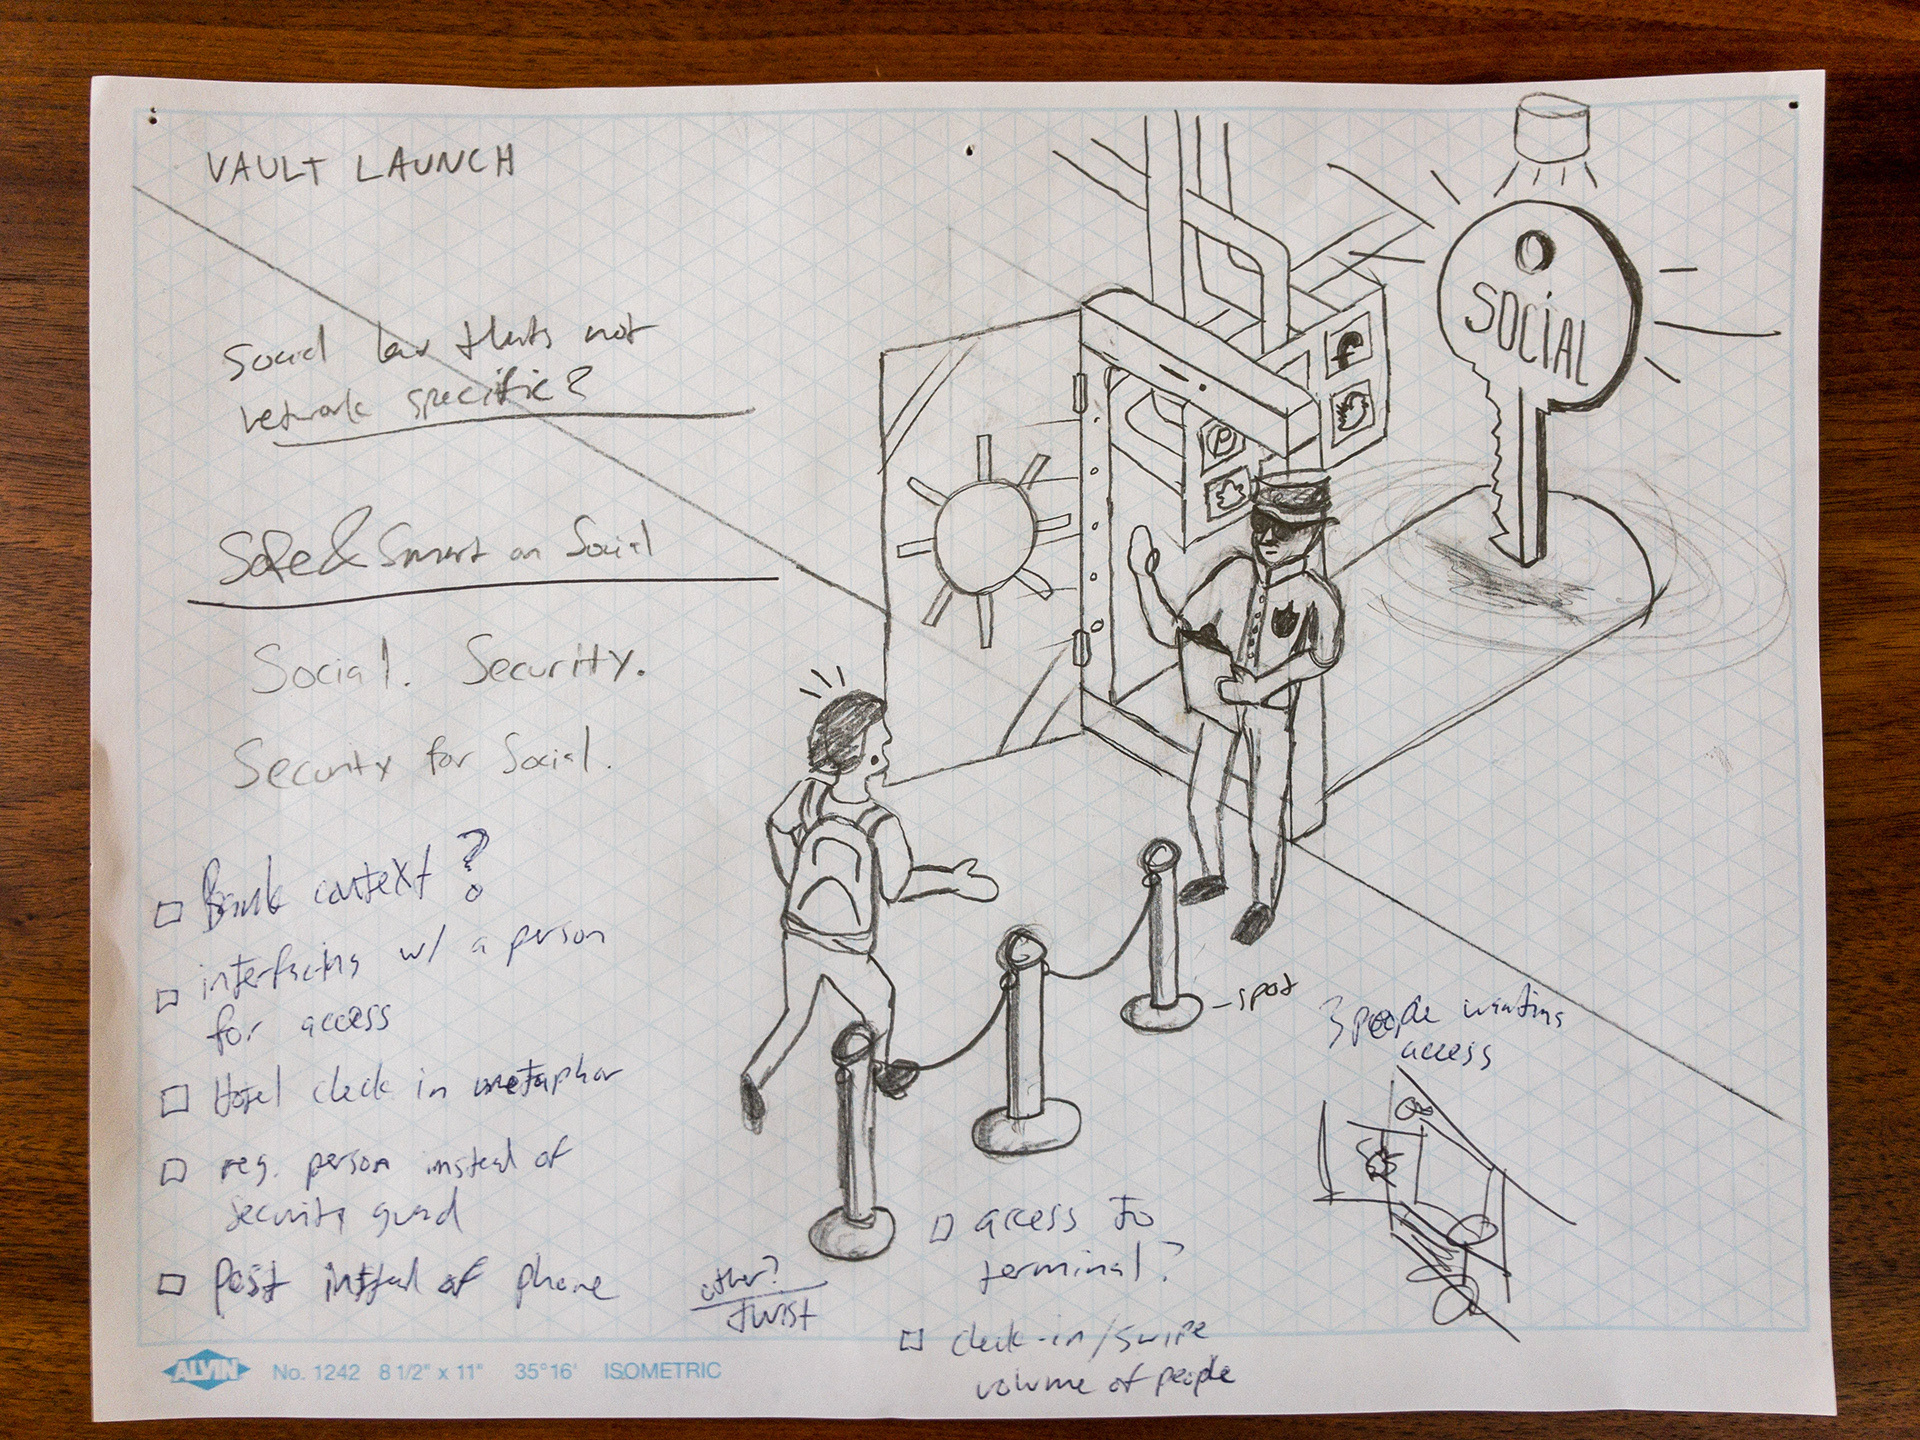 VAULT LAUNCH
Social that's not
network specific?
Safe & Smart on Social
Social. Security.
Security for Social.
Bank context?
interfacing w/ a person
for access
Hotel check in metaphor
reg. person instead of
security guard
Post instead of phone
other?
twist
access to
terminal?
check-in/swipe
volume of people
- spot
3 people wanting
access
SOCIAL
f
P
ALVIN No. 1242 8 1/2" x 11" 35°16' ISOMETRIC